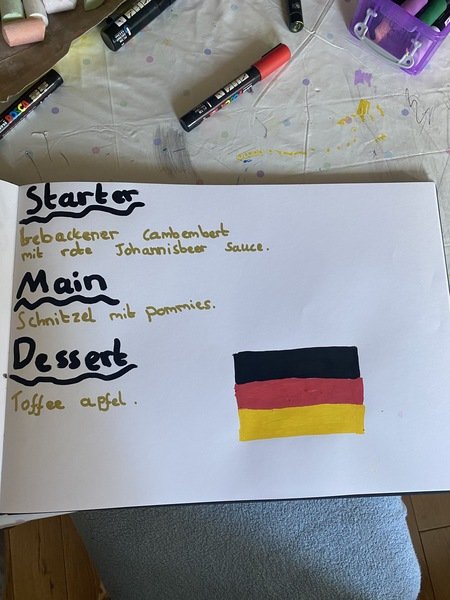 Starter
Gebackener Cambembert
mit rote Johannisbeer Sauce.
Main
Schnitzel mit pommies.
Dessert
Toffee apfel.